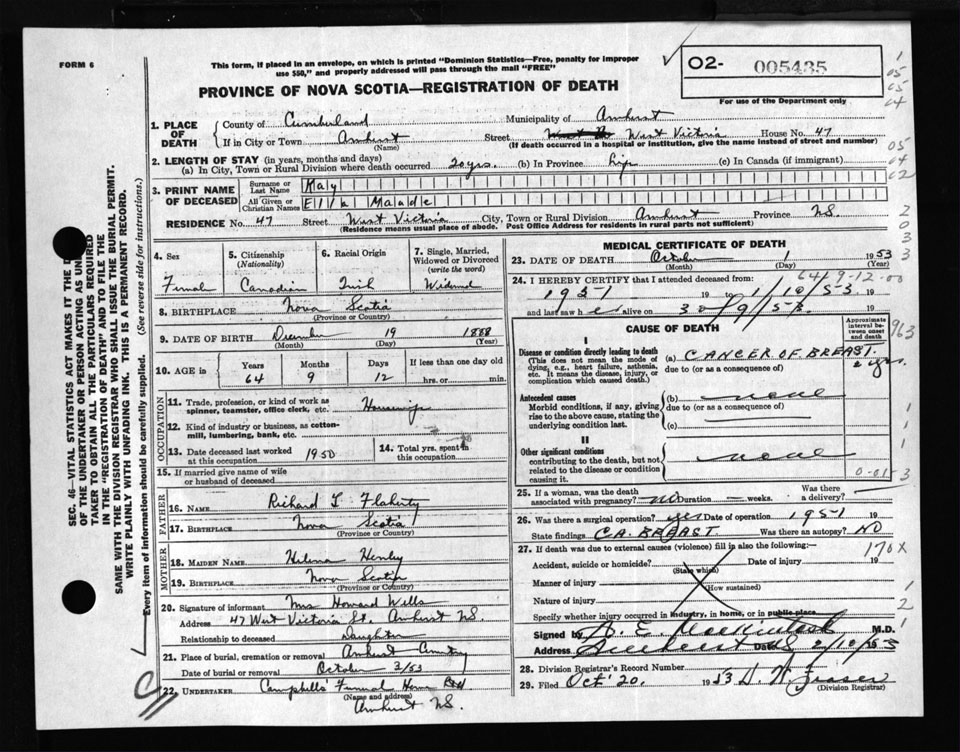 FORM 6
This form, if placed in an envelope, on which is printed "Dominion Statistics—Free, penalty for improper
use $50," and properly addressed will pass through the mail "FREE"
O2- 005435
For use of the Department only
PROVINCE OF NOVA SCOTIA—REGISTRATION OF DEATH
1. PLACE OF DEATH
County of Cumberland Municipality of Amherst
If in City or Town Amherst Street West Victoria House No. 47
(Name) (If death occurred in a hospital or institution, give the name instead of street and number)
2. LENGTH OF STAY (in years, months and days)
(a) In City, Town or Rural Division where death occurred 20 yrs. (b) In Province Life (c) In Canada (if immigrant)
3. PRINT NAME OF DECEASED
Surname or Last Name Kay
All Given or Christian Names Ella Maade
RESIDENCE No. 47 Street West Victoria City, Town or Rural Division Amherst Province N.S.
(Residence means usual place of abode. Post Office Address for residents in rural parts not sufficient)
4. Sex Femal
5. Citizenship (Nationality) Canadian
6. Racial Origin Irish
7. Single, Married, Widowed or Divorced (write the word) Widowed
8. BIRTHPLACE Nova Scotia
(Province or Country)
9. DATE OF BIRTH December 19 1888
(Month) (Day) (Year)
10. AGE in Years 64 Months 9 Days 12 If less than one day old hrs. or min.
OCCUPATION
11. Trade, profession, or kind of work as spinner, teamster, office clerk, etc. Housewife
12. Kind of industry or business, as cotton-mill, lumbering, bank, etc.
13. Date deceased last worked at this occupation 1950
14. Total yrs. spent in this occupation
15. If married give name of wife or husband of deceased
FATHER
16. NAME Richard T. Flaherty
17. BIRTHPLACE Nova Scotia
(Province or Country)
MOTHER
18. MAIDEN NAME Helena Henley
19. BIRTHPLACE Nova Scotia
(Province or Country)
20. Signature of informant Mrs Howard Wells
Address 47 West Victoria St. Amherst N.S.
Relationship to deceased Daughter
21. Place of burial, cremation or removal Amherst
Date of burial or removal October 3/53
22. UNDERTAKER Campbells Funeral Home
(Name and address)
Amherst N.S.
MEDICAL CERTIFICATE OF DEATH
23. DATE OF DEATH October 1 1953
(Month) (Day) (Year)
64/9-12-00
24. I HEREBY CERTIFY that I attended deceased from:
1951 19 to 1/10/53 19
and last saw h er alive on 30/9/53. 19
CAUSE OF DEATH
Approximate interval between onset and death
I
Disease or condition directly leading to death
(This does not mean the mode of dying, e.g., heart failure, asthenia, etc. It means the disease, injury, or complication which caused death.)
(a) CANCER OF BREAST. 2 yrs.
due to (or as a consequence of)
Antecedent causes
Morbid conditions, if any, giving rise to the above cause, stating the underlying condition last.
(b) none
due to (or as a consequence of)
(c)
II
Other significant conditions
contributing to the death, but not related to the disease or condition causing it.
none
25. If a woman, was the death associated with pregnancy? no Duration — weeks. Was there a delivery?
26. Was there a surgical operation? yes Date of operation 1951 19
State findings CA. BREAST. Was there an autopsy? NO
27. If death was due to external causes (violence) fill in also the following:—
170X
Accident, suicide or homicide? Date of injury 19
(State which)
Manner of injury
(How sustained)
Nature of injury
Specify whether injury occurred in industry, in home, or in public place
Signed by A. E. Mackintosh M.D.
Address Amherst NS Date 2/10/53
28. Division Registrar's Record Number
29. Filed Oct 20. 1953 D. W. Fraser
(Division Registrar)
SEC. 46—VITAL STATISTICS ACT MAKES IT THE D
OF THE UNDERTAKER OR PERSON ACTING AS UN
TAKER TO OBTAIN ALL THE PARTICULARS REQUIRED
IN THE "REGISTRATION OF DEATH" AND TO FILE THE
SAME WITH THE DIVISION REGISTRAR WHO SHALL ISSUE THE BURIAL PERMIT.
WRITE PLAINLY WITH UNFADING INK. THIS IS A PERMANENT RECORD.
Every item of information should be carefully supplied. (See reverse side for instructions.)